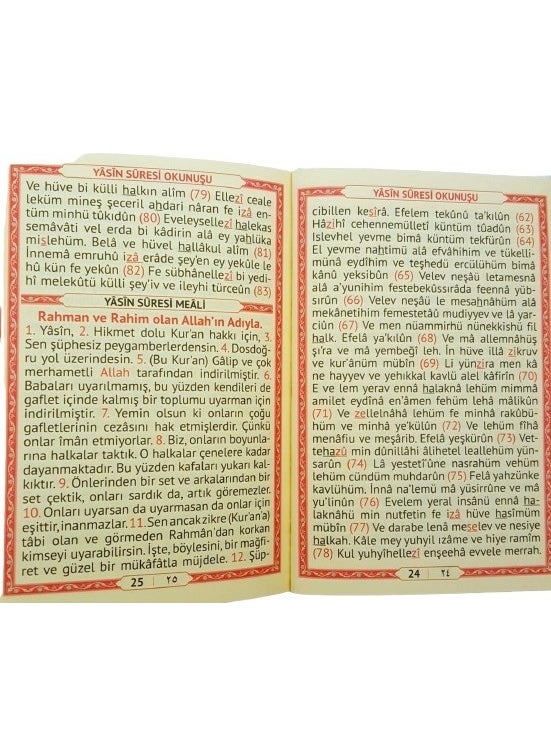 YÂSÎN SÛRESİ OKUNUŞU
cibillen kesîrâ. Efelem tekûnû ta'kılûn (62)
Hâzihî cehennemülletî küntüm tûadûn (63)
Islevhel yevme bimâ küntüm tekfürûn (64)
El yevme nahtimü alâ efvâhihim ve tükelli-
münâ eydîhim ve teşhedü ercülühüm bimâ
kânû yeksibûn (65) Velev neşâü letamesnâ
alâ a'yunihim festebekussırâda feennâ yüb-
sırûn (66) Velev neşâü le mesahnâhüm alâ
mekânetihim femestetâû mudiyyev ve lâ yar-
ciûn (67) Ve men nüammirhü nünekkishü fil
halk. Efelâ ya'kılûn (68) Ve mâ allemnâhüş
şı'ra ve mâ yembeğî leh. İn hüve illâ zikruv
ve kur'ânüm mübîn (69) Li yünzira men kâ
ne hayyev ve yehıkkal kavlü alel kâfirîn (70)
E ve lem yerav ennâ halaknâ lehüm mimmâ
amilet eydînâ en'âmen fehüm lehâ mâlikûn
(71) Ve zellelnâhâ lehüm fe minhâ rakûbü-
hüm ve minhâ ye'külûn (72) Ve lehüm fîhâ
menâfiu ve meşârib. Efelâ yeşkürûn (73) Vet-
tehazû min dûnillâhi âlihetel leallehüm yün-
sarûn (74) Lâ yestetî'ûne nasrahüm vehüm
lehüm cündüm muhdarûn (75) Felâ yahzünke
kavlühüm. İnnâ na'lemü mâ yüsirrûne ve mâ
yu'linûn (76) Evelem yeral insânü ennâ ha-
laknâhü min nutfetin fe izâ hüve hasîmüm
mübîn (77) Ve darabe lenâ meselev ve nesiye
halkah. Kâle mey yuhyil ızâme ve hiye ramîm
(78) Kul yuhyîhellezî enşeehâ evvele merrah.
24 ٢٤
YÂSÎN SÛRESİ OKUNUŞU
Ve hüve bi külli halkın alîm (79) Ellezî ceale
leküm mineş şeceril ahdari nâran fe izâ en-
tüm minhü tûkıdûn (80) Eveleysellezî halekas
semâvâti vel erda bi kâdirin alâ ey yahlüka
mislehüm. Belâ ve hüvel hallâkul alîm (81)
İnnemâ emruhû izâ erâde şey'en ey yekûle le
hû kün fe yekûn (82) Fe sübhânellezî bi yedi-
hî melekûtü külli şey'iv ve ileyhi türceûn (83)
YÂSÎN SÛRESİ MEÂLİ
Rahman ve Rahim olan Allah'ın Adıyla.
1. Yâsîn, 2. Hikmet dolu Kur'an hakkı için, 3.
Sen şüphesiz peygamberlerdensin. 4. Dosdoğ-
ru yol üzerindesin. 5. (Bu Kur'an) Gâlip ve çok
merhametli Allah tarafından indirilmiştir. 6.
Babaları uyarılmamış, bu yüzden kendileri de
gaflet içinde kalmış bir toplumu uyarman için
indirilmiştir. 7. Yemin olsun ki onların çoğu
gafletlerinin cezasını hak etmişlerdir. Çünkü
onlar îmân etmiyorlar. 8. Biz, onların boyunla-
rına halkalar taktık. O halkalar çenelere kadar
dayanmaktadır. Bu yüzden kafaları yukarı kal-
kıktır. 9. Önlerinden bir set ve arkalarından bir
set çektik, onları sardık da, artık göremezler.
10. Onları uyarsan da uyarmasan da onlar için
eşittir, inanmazlar. 11. Sen ancak zikre (Kur'an'a)
tâbi olan ve görmeden Rahmân'dan korkan
kimseyi uyarabilirsin. İşte, böylesini, bir mağfi-
ret ve güzel bir mükâfâtla müjdele. 12. Şüp-
25 ٢٥